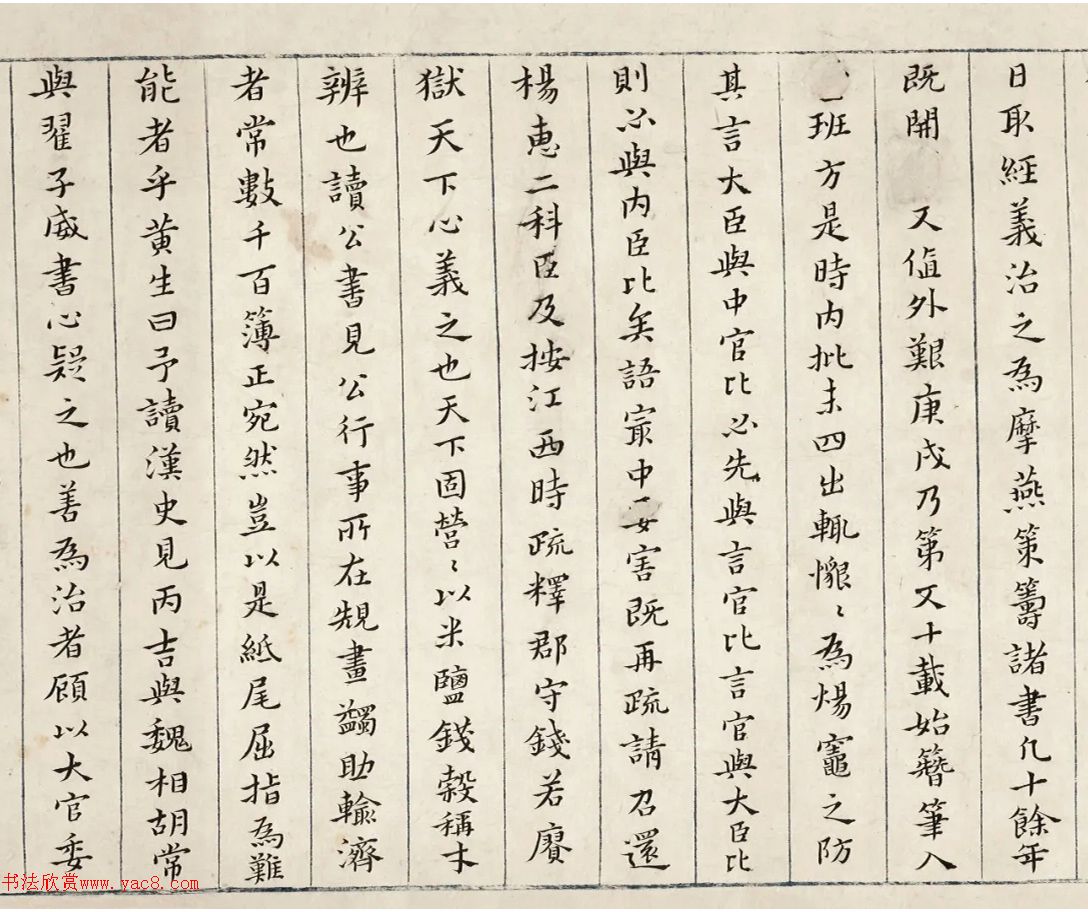 日取經義治之為摩燕策籌諸書凡十餘年
既開 又值外艱庚戌乃第又十載始簪筆入
班方是時内批未四出輒懇〻為煬竈之防
其言大臣與中官比必先與言官比言官與大臣比
則必與内臣比矣語㝡中要害既再疏請召還
楊惠二科臣及按江西時疏釋郡守錢若賡
獄天下心義之也天下固營〻以米鹽錢穀稱才
辨也讀公書見公行事所在䂓畫蠲助輸濟
者常數千百簿正宛然豈以是紙尾屈指為難
能者乎黄生曰予讀漢史見丙吉與魏相胡常
與翟子威書心疑之也善為治者顧以大官委
书法欣赏www.yac8.com